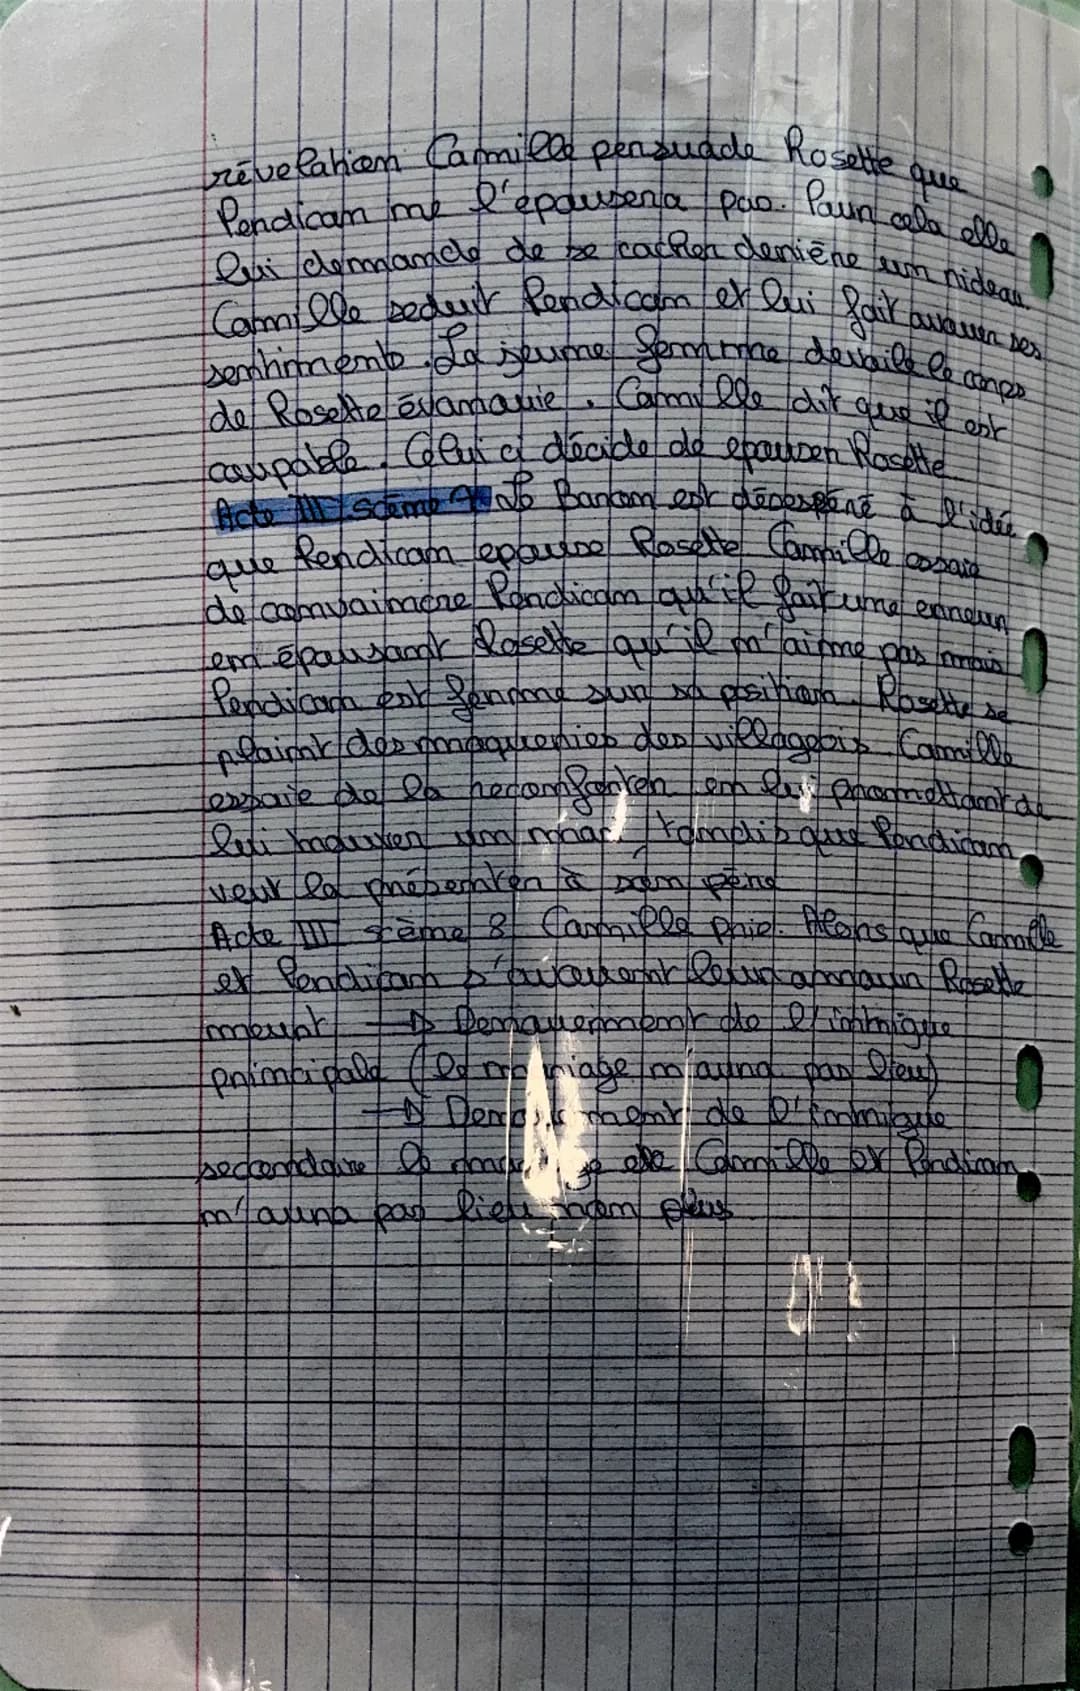 révelation Camille persuade Rosette que
Perdican ne l'epousera pas. Pour cela elle
lui demande de se cacher derière un rideau
Camille seduit Perdican et lui fait avouer ses
sentiments. La jeune femme devoile le corps
de Rosette évanouie. Camille dit que il est
coupable. Celui ci décide de epouser Rosette
Acte III scème 7 Le Baron est désespéré à l'idée
que Perdican epouse Rosette Camille essaie
de convaincre Perdican qu'il fait une erreur
en épousant Rosette qu'il n'aime pas mais
Perdican est ferme sur sa position. Rosette se
plaint des moqueries des villageois Camille
essaie de la reconforter en lui promettant de
lui trouver un mari tandis que Perdican
veut la présenter à son père
Acte III scème 8 Camille prie. Alors que Camille
et Perdican s'avouent leur amour Rosette
meurt → Denouement de l'intrigue
principale (le mariage n'aura pas lieu)
→ Denouement de l'intrigue
secondaire le mariage de Camille et Perdican
n'aura pas lieu non plus